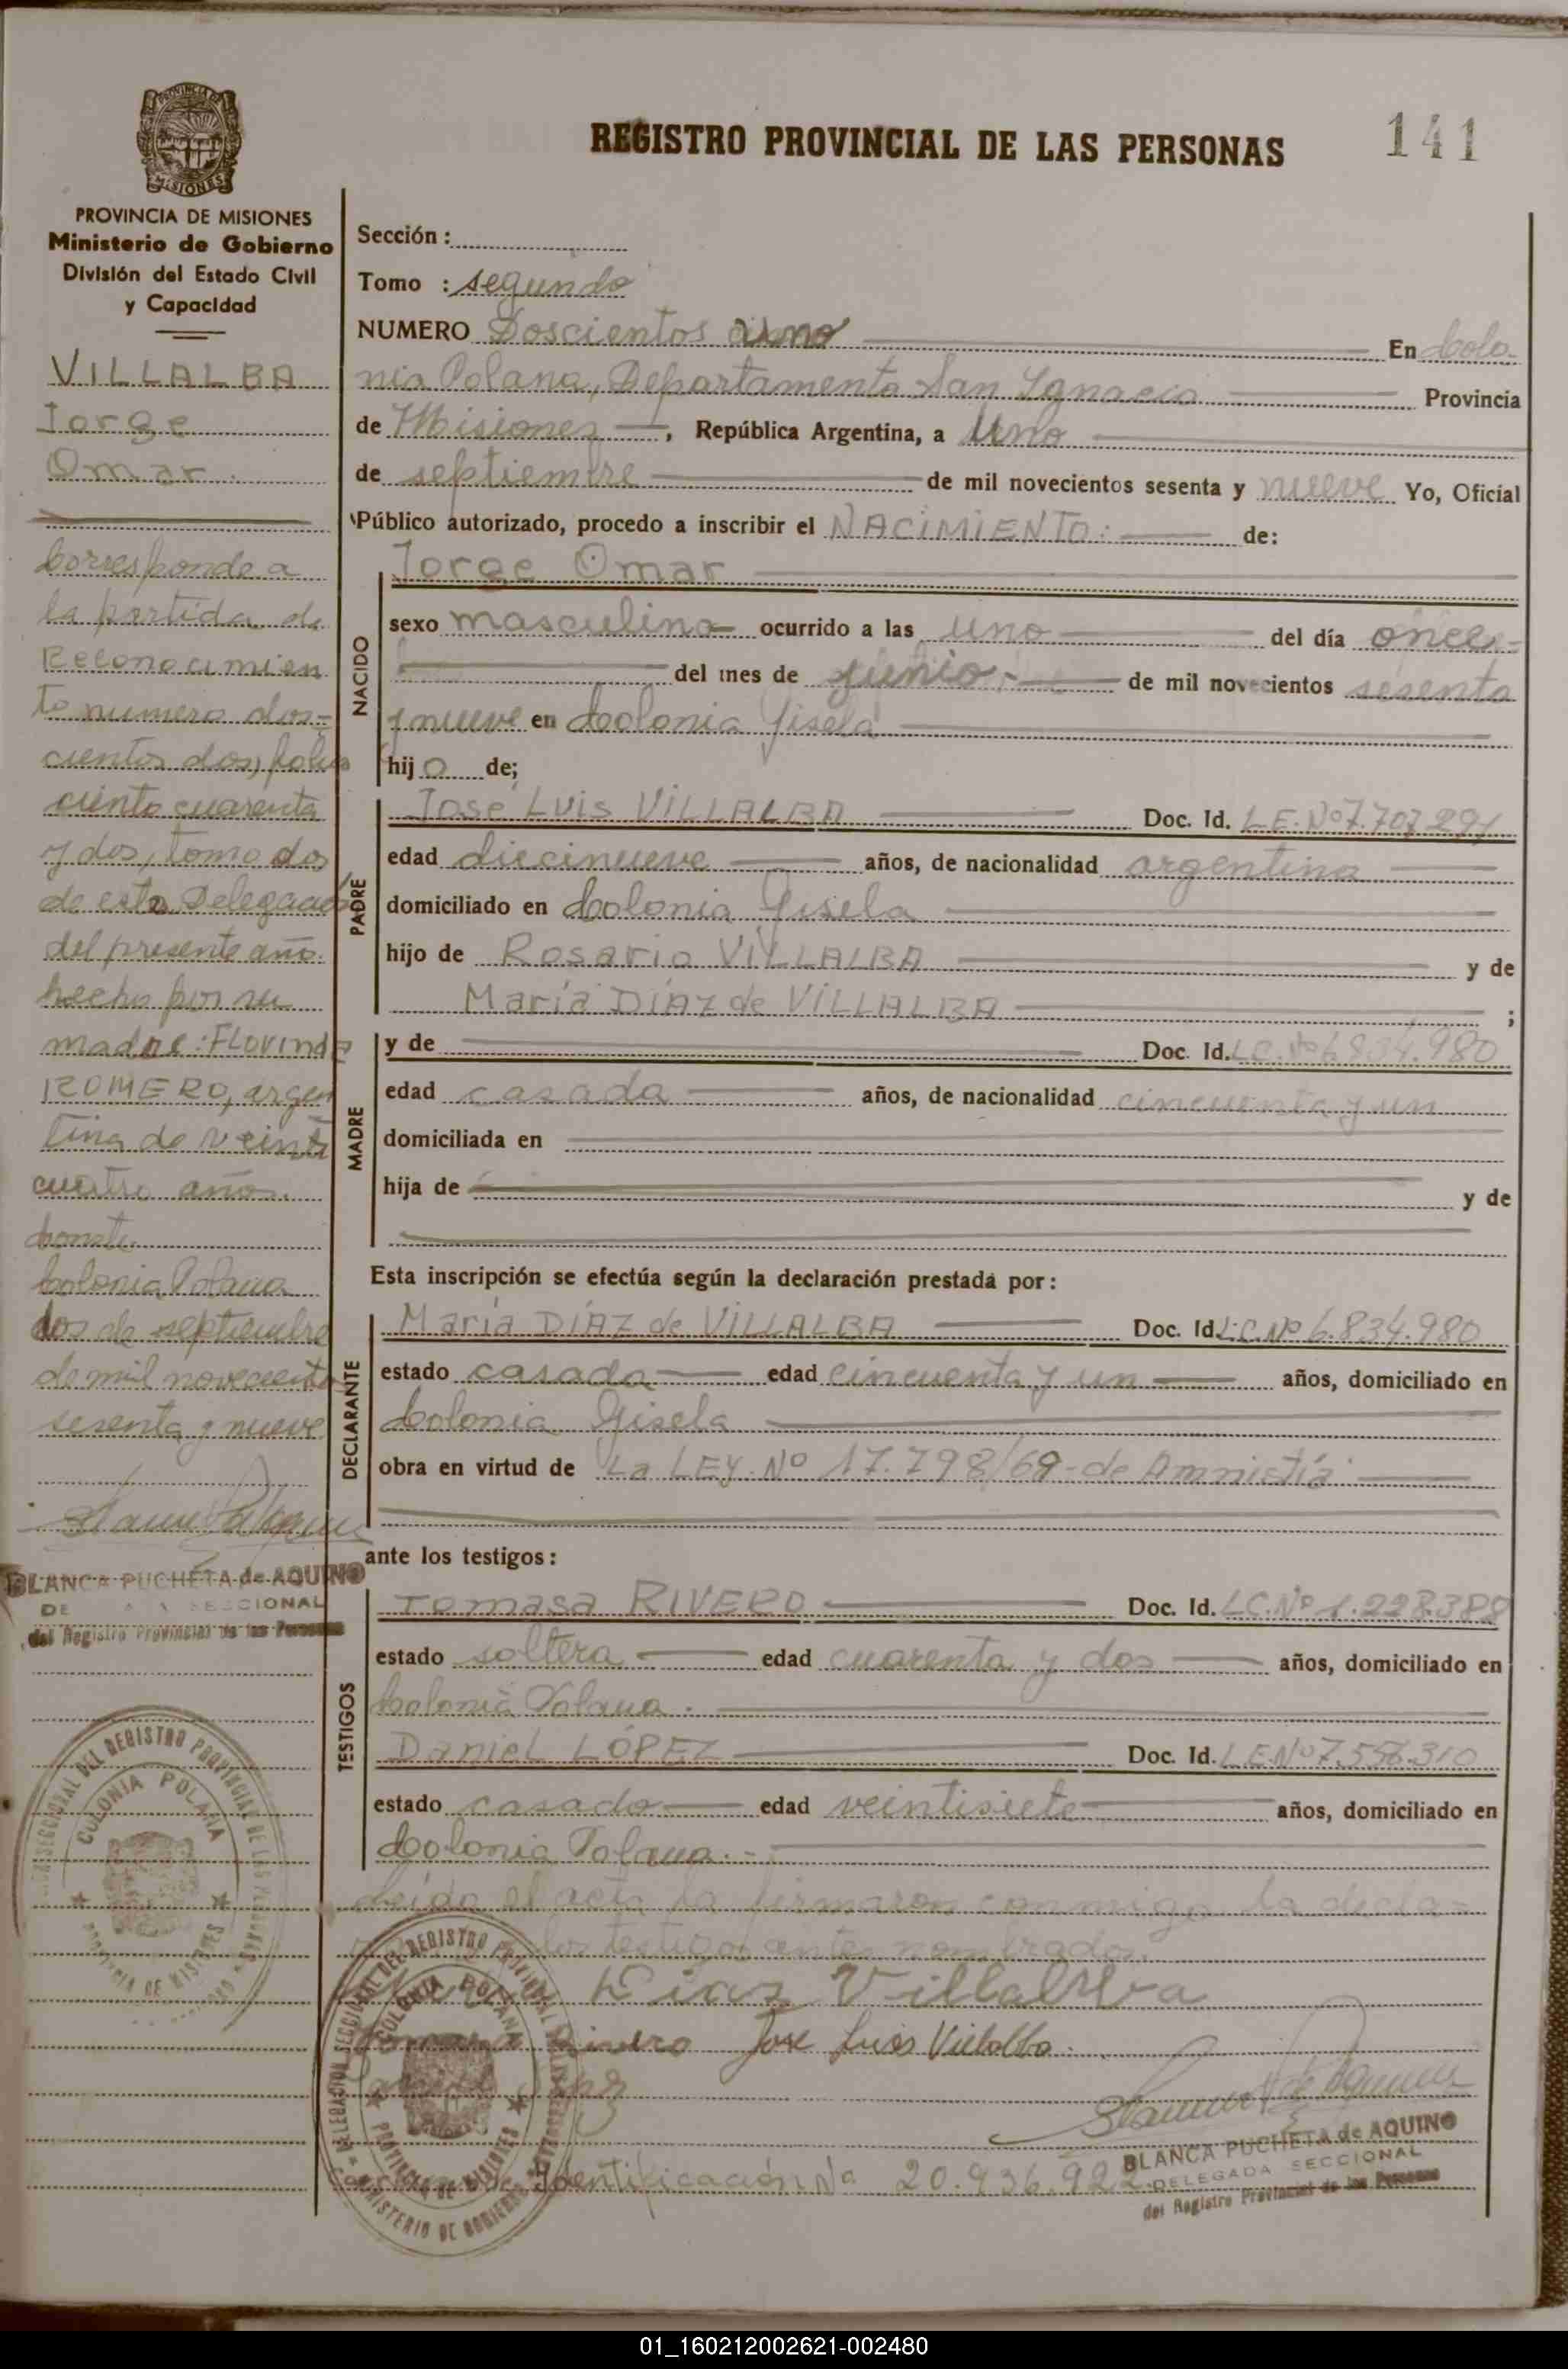 REGISTRO PROVINCIAL DE LAS PERSONAS
141
PROVINCIA DE MISIONES
PROVINCIA DE MISIONES
Ministerio de Gobierno
División del Estado Civil
y Capacidad
VILLALBA
Jorge
Omar
Corresponde a
la partida de
Reconocimien
to numero dos-
cientos dos, folio
ciento cuarenta
y dos, tomo dos
de esta Delegación
del presente año.
hecho por su
madre: FLORINDA
ROMERO, argen
tina de veinti
cuatro años.
Conste
Colonia Polana
dos de septiembre
de mil novecientos
sesenta y nueve
BLANCA PUCHETA de AQUINO
SECCIONAL
del Registro Provincial de las Personas
SECCIONAL DEL REGISTRO PROVINCIAL DE LAS PERSONAS
COLONIA POLANA
PROVINCIA DE MISIONES
Sección :
Tomo : segundo
NUMERO Doscientos uno En Colo-
nia Polana, Departamento San Ignacio Provincia
de Misiones, República Argentina, a Uno
de septiembre de mil novecientos sesenta y nueve Yo, Oficial
Público autorizado, procedo a inscribir el NACIMIENTO: de:
NACIDO
Jorge Omar
sexo masculino ocurrido a las uno del día once-
del mes de junio.- de mil novecientos sesenta
y nueve en Colonia Gisela
hijo de;
PADRE
José Luis VILLALBA Doc. Id. L.E.Nº7.707.291
edad diecinueve años, de nacionalidad argentina
domiciliado en Colonia Gisela
hijo de Rosario VILLALBA y de
María DÍAZ de VILLALBA ;
MADRE
y de Doc. Id. L.C.Nº6.834.980
edad casada años, de nacionalidad cincuenta y un
domiciliada en
hija de y de
Esta inscripción se efectúa según la declaración prestada por:
DECLARANTE
María DÍAZ de VILLALBA Doc. Id. L.C.Nº 6.834.980
estado casada edad cincuenta y un años, domiciliado en
Colonia Gisela
obra en virtud de La LEY. Nº 17.798/69-de Amnistía
ante los testigos:
TESTIGOS
Tomasa RIVERO Doc. Id. L.C.Nº 1.228.388
estado soltera edad cuarenta y dos años, domiciliado en
Colonia Polana.
Daniel LÓPEZ Doc. Id. L.E.Nº7.556.310
estado casado edad veintisiete años, domiciliado en
Colonia Polana.-
Leída el acta la firmaron conmigo la decla-
los testigos antes nombrados.
Diaz Villalba
Rivero Jose Luis Villalba
DELEGACION SECCIONAL DEL REGISTRO PROVINCIAL
COLONIA POLANA
PROVINCIA DE MISIONES
MINISTERIO DE GOBIERNO
BLANCA PUCHETA de AQUINO
DELEGADA SECCIONAL
del Registro Provincial de las Personas
Identificación Nº 20.936.922
01_160212002621-002480